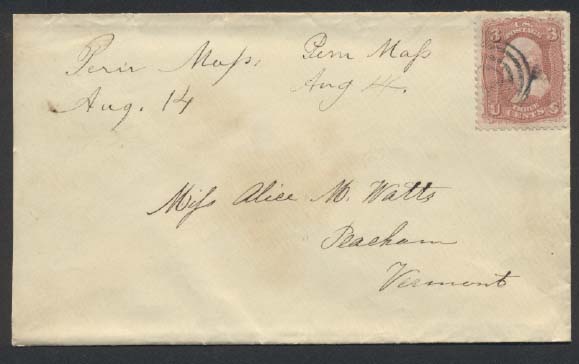 Peru Mass.
Aug. 14
Peru Mass
Aug 14.
3 U.S. POSTAGE 3
U THREE CENTS S
Miss Alice M. Watts
Peacham
Vermont